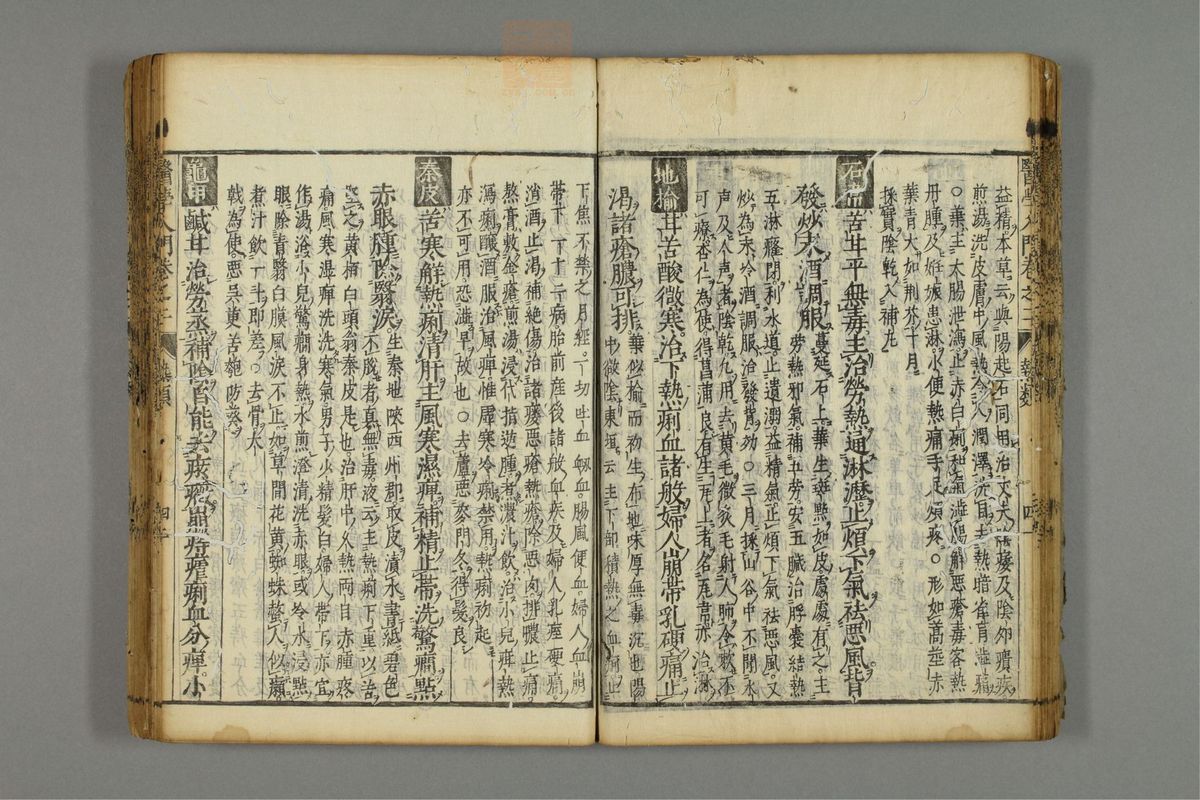 益精本草云與陽起石同用治丈夫陰痿及陰卵㿉疾
煎湯洗皮膚中風熱冷令人潤澤洗耳主熱暗雀盲澁痛
○葉主大腸泄瀉止赤白痢利氣澁腸解惡瘡毒客熱
丹腫及姙娠患淋小便熱痛手足煩疼○形如蒿莖赤
葉青大如荆芥十月
採實陰乾入補丸
石韋苦甘平無毒主治勞熱通淋瀝止煩下氣祛惡風背
發炒末酒調服蔓延石上葉生斑點如皮處處有之主
勞熱邪氣補五勞安五臟治脬囊結熱
五淋癃閉利水道止遺溺益精氣止煩下氣祛惡風又
炒為末冷酒調服治發背効○三月採山谷中不聞水
声及人声者陰乾凢用去黄毛微炙毛射人肺令欬不
可療杏仁為使得菖蒲良有生瓦上者名瓦韋亦治淋
地榆甘苦酸微寒治下熱痢血諸般婦人崩帶乳硬痛止
渴諸瘡膿可排葉似榆而初生布地味厚無毒沉也陽
中微陰東垣云主下部積熱之血痢止
下焦不禁之月經一切吐血衂血腸風便血婦人血崩
帶下十二病胎前産後諸般血疾及婦人乳痓硬痛
消酒止渴補絶傷治諸瘻惡瘡熱瘡除惡肉排膿止痛
熬膏敷金瘡煎湯浸代指逆腫者濃汁飲治小兒疳熱
瀉痢釀酒服治風痺惟虛寒冷痢禁用熱痢初起
亦不可用恐澁早故也○去蘆惡麥門冬得髮良
秦皮苦寒解熱痢清肝主風寒濕痺補精止帶洗驚癇點
赤眼腫障翳淚生秦地陝西州郡取皮漬水書紙碧色
不脫者真無毒液云主熱痢下重以苦
堅之黄栢白頭翁秦皮是也治肝中乆熱兩目赤腫疼
痛風寒濕痺洗洗寒氣男子少精髮白婦人帶下亦宜
作湯浴小兒驚癎身熱水煎澄清洗赤眼或冷水浸點
眼除青翳白膜風淚不止如草間花黄蜘蛛螫人似癩
煮汁飲一斗即差○去骨大
戟為使惡吳茱萸苦瓠防葵
龜甲鹹甘治勞蒸補陰首能去痎瘧崩痔瘧痢血分痺小
醫學入門卷之二